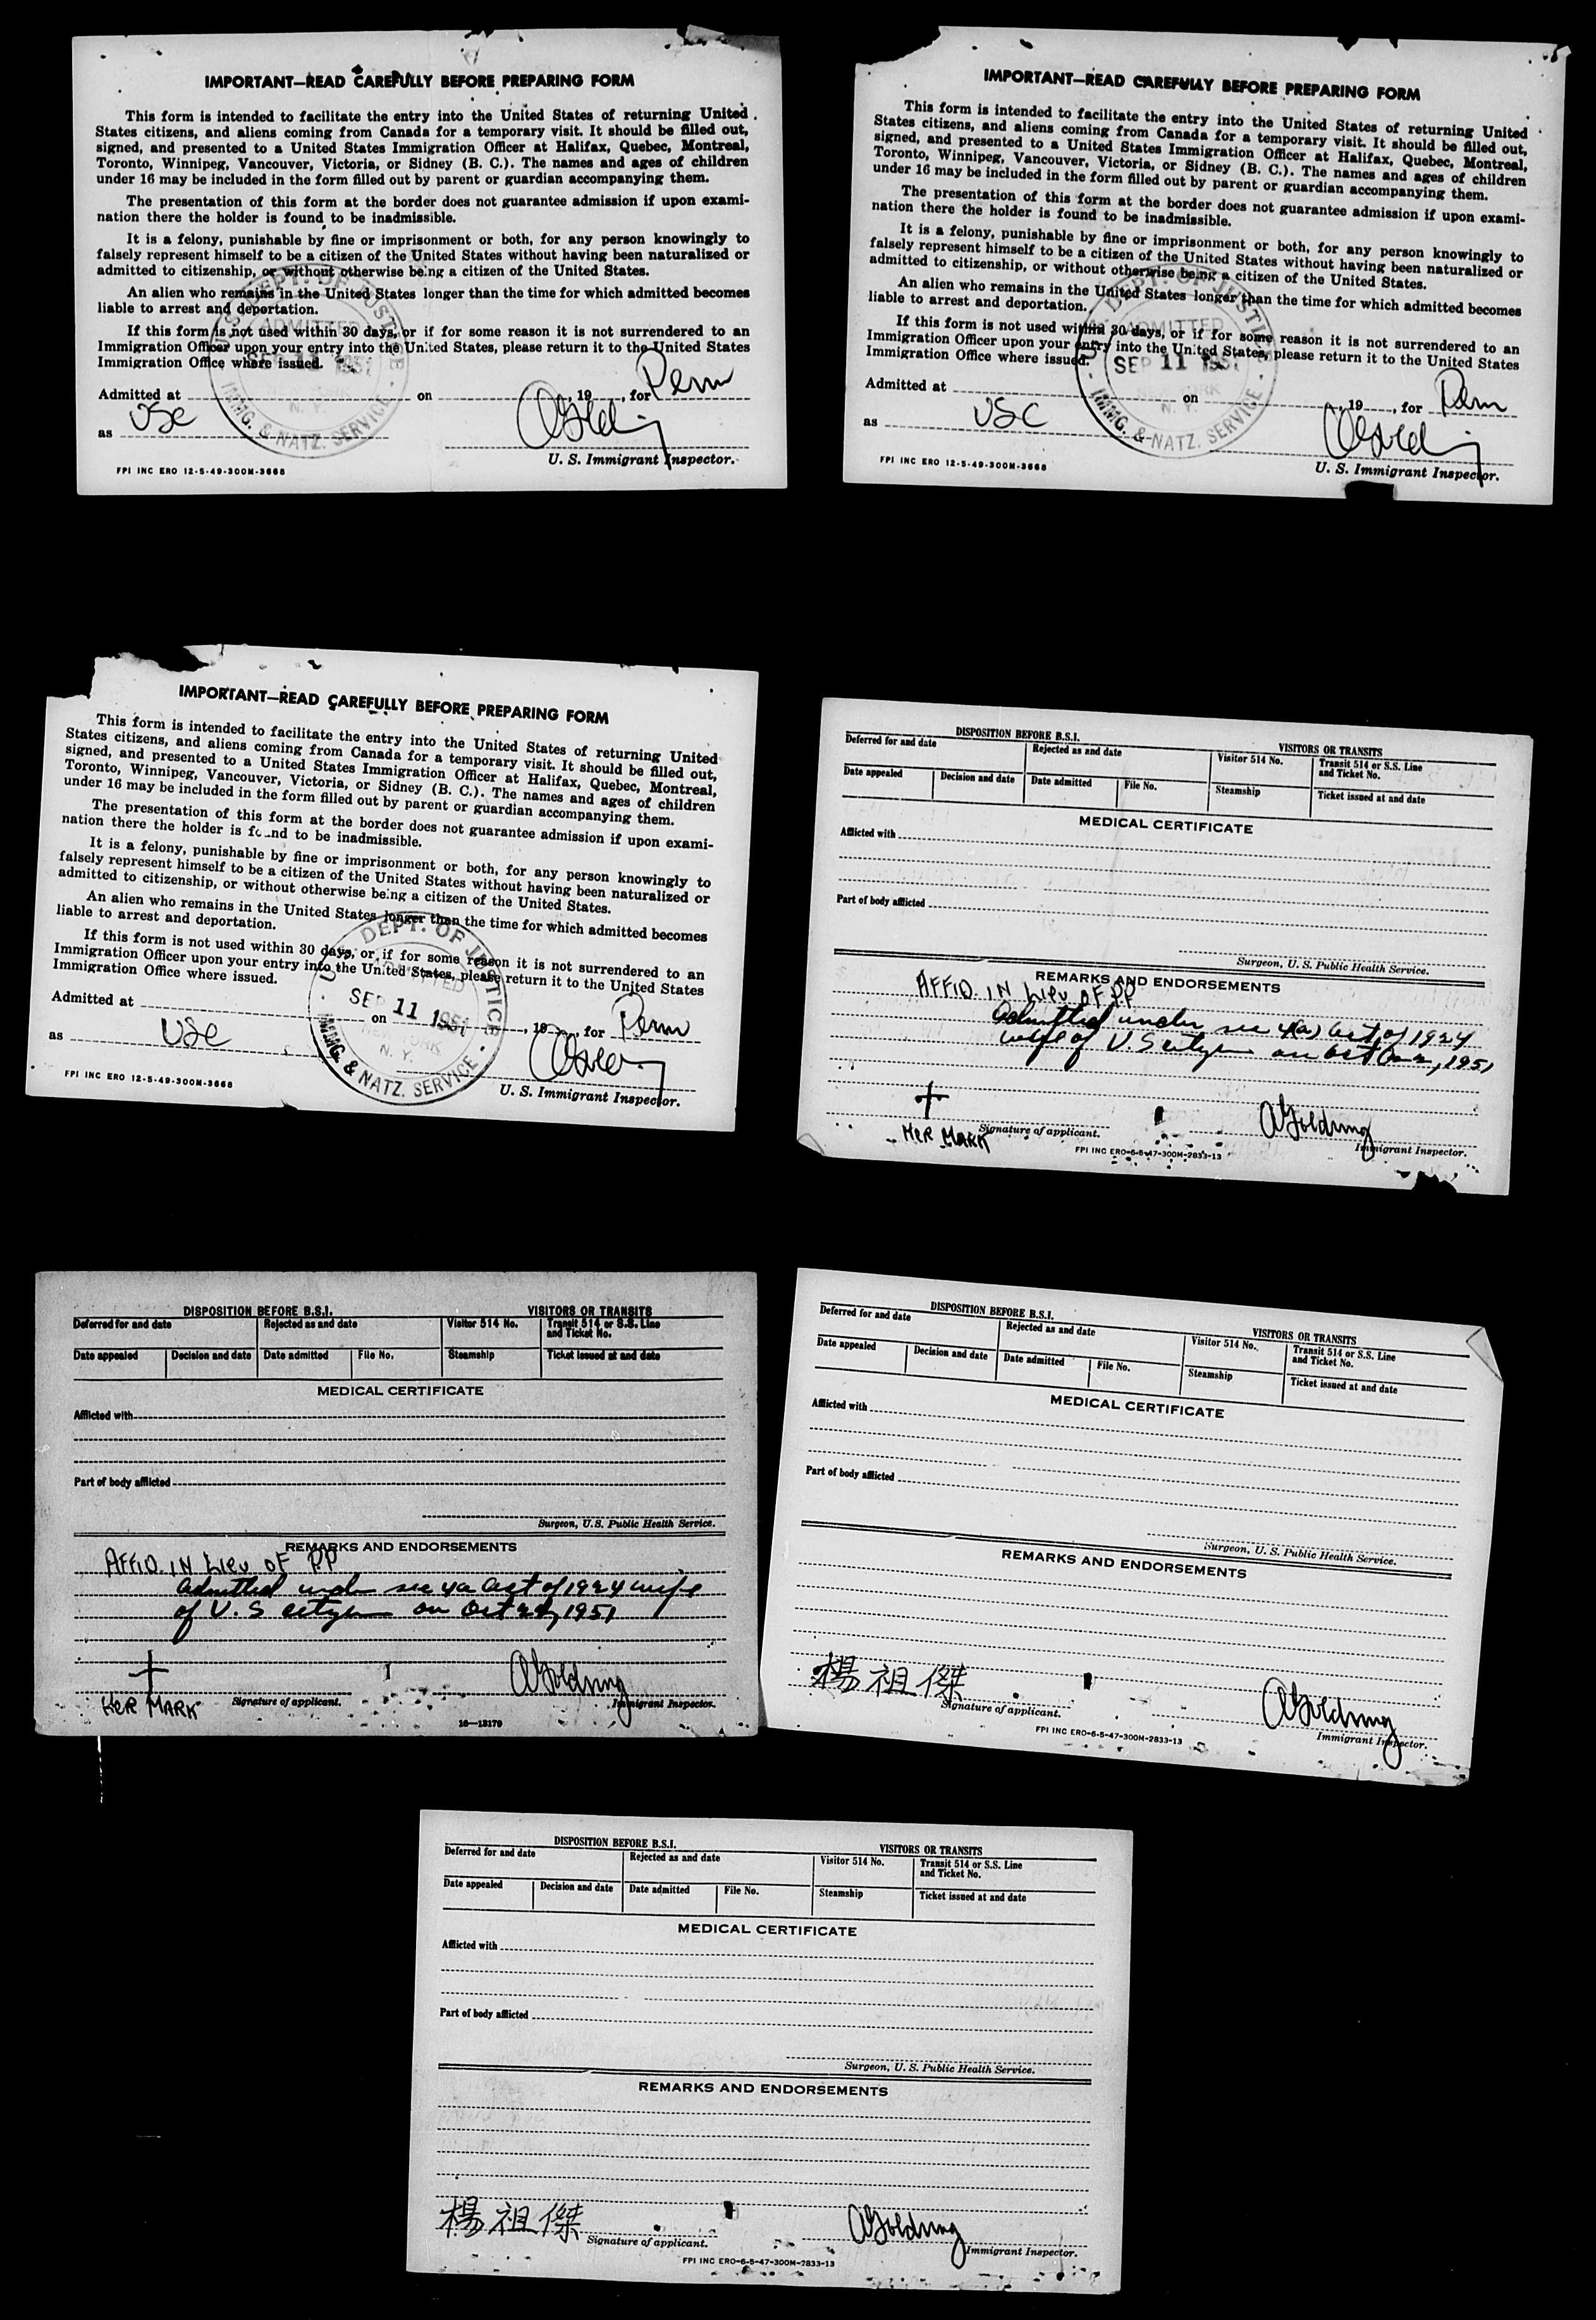 IMPORTANT—READ CAREFULLY BEFORE PREPARING FORM
This form is intended to facilitate the entry into the United States of returning United
States citizens, and aliens coming from Canada for a temporary visit. It should be filled out,
signed, and presented to a United States Immigration Officer at Halifax, Quebec, Montreal,
Toronto, Winnipeg, Vancouver, Victoria, or Sidney (B. C.). The names and ages of children
under 16 may be included in the form filled out by parent or guardian accompanying them.
The presentation of this form at the border does not guarantee admission if upon exami-
nation there the holder is found to be inadmissible.
It is a felony, punishable by fine or imprisonment or both, for any person knowingly to
falsely represent himself to be a citizen of the United States without having been naturalized or
admitted to citizenship, or without otherwise being a citizen of the United States.
An alien who remains in the United States longer than the time for which admitted becomes
liable to arrest and deportation.
If this form is not used within 30 days, or if for some reason it is not surrendered to an
Immigration Officer upon your entry into the United States, please return it to the United States
Immigration Office where issued.
U.S. DEPT. OF JUSTICE
ADMITTED
SEP 11 1951
NEW YORK
N. Y.
IMMG. & NATZ. SERVICE
Admitted at on , 19 , for Perm
as USC
U. S. Immigrant Inspector.
FPI INC ERO 12-5-49-300M-3668
IMPORTANT—READ CAREFULLY BEFORE PREPARING FORM
This form is intended to facilitate the entry into the United States of returning United
States citizens, and aliens coming from Canada for a temporary visit. It should be filled out,
signed, and presented to a United States Immigration Officer at Halifax, Quebec, Montreal,
Toronto, Winnipeg, Vancouver, Victoria, or Sidney (B. C.). The names and ages of children
under 16 may be included in the form filled out by parent or guardian accompanying them.
The presentation of this form at the border does not guarantee admission if upon exami-
nation there the holder is found to be inadmissible.
It is a felony, punishable by fine or imprisonment or both, for any person knowingly to
falsely represent himself to be a citizen of the United States without having been naturalized or
admitted to citizenship, or without otherwise being a citizen of the United States.
An alien who remains in the United States longer than the time for which admitted becomes
liable to arrest and deportation.
If this form is not used within 30 days, or if for some reason it is not surrendered to an
Immigration Officer upon your entry into the United States, please return it to the United States
Immigration Office where issued.
U.S. DEPT. OF JUSTICE
ADMITTED
SEP 11 1951
NEW YORK
N. Y.
IMMG. & NATZ. SERVICE
Admitted at on , 19 , for Perm
as USC
U. S. Immigrant Inspector.
FPI INC ERO 12-5-49-300M-3668
IMPORTANT—READ CAREFULLY BEFORE PREPARING FORM
This form is intended to facilitate the entry into the United States of returning United
States citizens, and aliens coming from Canada for a temporary visit. It should be filled out,
signed, and presented to a United States Immigration Officer at Halifax, Quebec, Montreal,
Toronto, Winnipeg, Vancouver, Victoria, or Sidney (B. C.). The names and ages of children
under 16 may be included in the form filled out by parent or guardian accompanying them.
The presentation of this form at the border does not guarantee admission if upon exami-
nation there the holder is found to be inadmissible.
It is a felony, punishable by fine or imprisonment or both, for any person knowingly to
falsely represent himself to be a citizen of the United States without having been naturalized or
admitted to citizenship, or without otherwise being a citizen of the United States.
An alien who remains in the United States longer than the time for which admitted becomes
liable to arrest and deportation.
If this form is not used within 30 days, or if for some reason it is not surrendered to an
Immigration Officer upon your entry into the United States, please return it to the United States
Immigration Office where issued.
U.S. DEPT. OF JUSTICE
ADMITTED
SEP 11 1951
NEW YORK
N. Y.
IMMG. & NATZ. SERVICE
Admitted at on , 19 , for Perm
as USC
U. S. Immigrant Inspector.
FPI INC ERO 12-5-49-300M-3668
DISPOSITION BEFORE B.S.I. VISITORS OR TRANSITS
Deferred for and date Rejected as and date Visitor 514 No. Transit 514 or S.S. Line
and Ticket No.
Date appealed Decision and date Date admitted File No. Steamship Ticket issued at and date
MEDICAL CERTIFICATE
Afflicted with
Part of body afflicted
Surgeon, U. S. Public Health Service.
REMARKS AND ENDORSEMENTS
AFFID. IN LIEU OF PP
Admitted under sec 4(a) Act of 1924
wife of U.S citizen on Oct 22, 1951
+
HER MARK Signature of applicant. AGoldring
Immigrant Inspector.
FPI INC ERO-6-5-47-300M-2833-13
DISPOSITION BEFORE B.S.I. VISITORS OR TRANSITS
Deferred for and date Rejected as and date Visitor 514 No. Transit 514 or S.S. Line
and Ticket No.
Date appealed Decision and date Date admitted File No. Steamship Ticket issued at and date
MEDICAL CERTIFICATE
Afflicted with
Part of body afflicted
Surgeon, U. S. Public Health Service.
REMARKS AND ENDORSEMENTS
AFFID. IN LIEU OF PP
Admitted under sec 4a Act of 1924 wife
of U. S citizen on Oct 22, 1951
+
HER MARK Signature of applicant. AGoldring
Immigrant Inspector.
16—13179
DISPOSITION BEFORE B.S.I. VISITORS OR TRANSITS
Deferred for and date Rejected as and date Visitor 514 No. Transit 514 or S.S. Line
and Ticket No.
Date appealed Decision and date Date admitted File No. Steamship Ticket issued at and date
MEDICAL CERTIFICATE
Afflicted with
Part of body afflicted
Surgeon, U. S. Public Health Service.
REMARKS AND ENDORSEMENTS
楊祖傑 AGoldring
Signature of applicant. Immigrant Inspector.
FPI INC ERO-6-5-47-300M-2833-13
DISPOSITION BEFORE B.S.I. VISITORS OR TRANSITS
Deferred for and date Rejected as and date Visitor 514 No. Transit 514 or S.S. Line
and Ticket No.
Date appealed Decision and date Date admitted File No. Steamship Ticket issued at and date
MEDICAL CERTIFICATE
Afflicted with
Part of body afflicted
Surgeon, U. S. Public Health Service.
REMARKS AND ENDORSEMENTS
楊祖傑 AGoldring
Signature of applicant. Immigrant Inspector.
FPI INC ERO-6-5-47-300M-2833-13